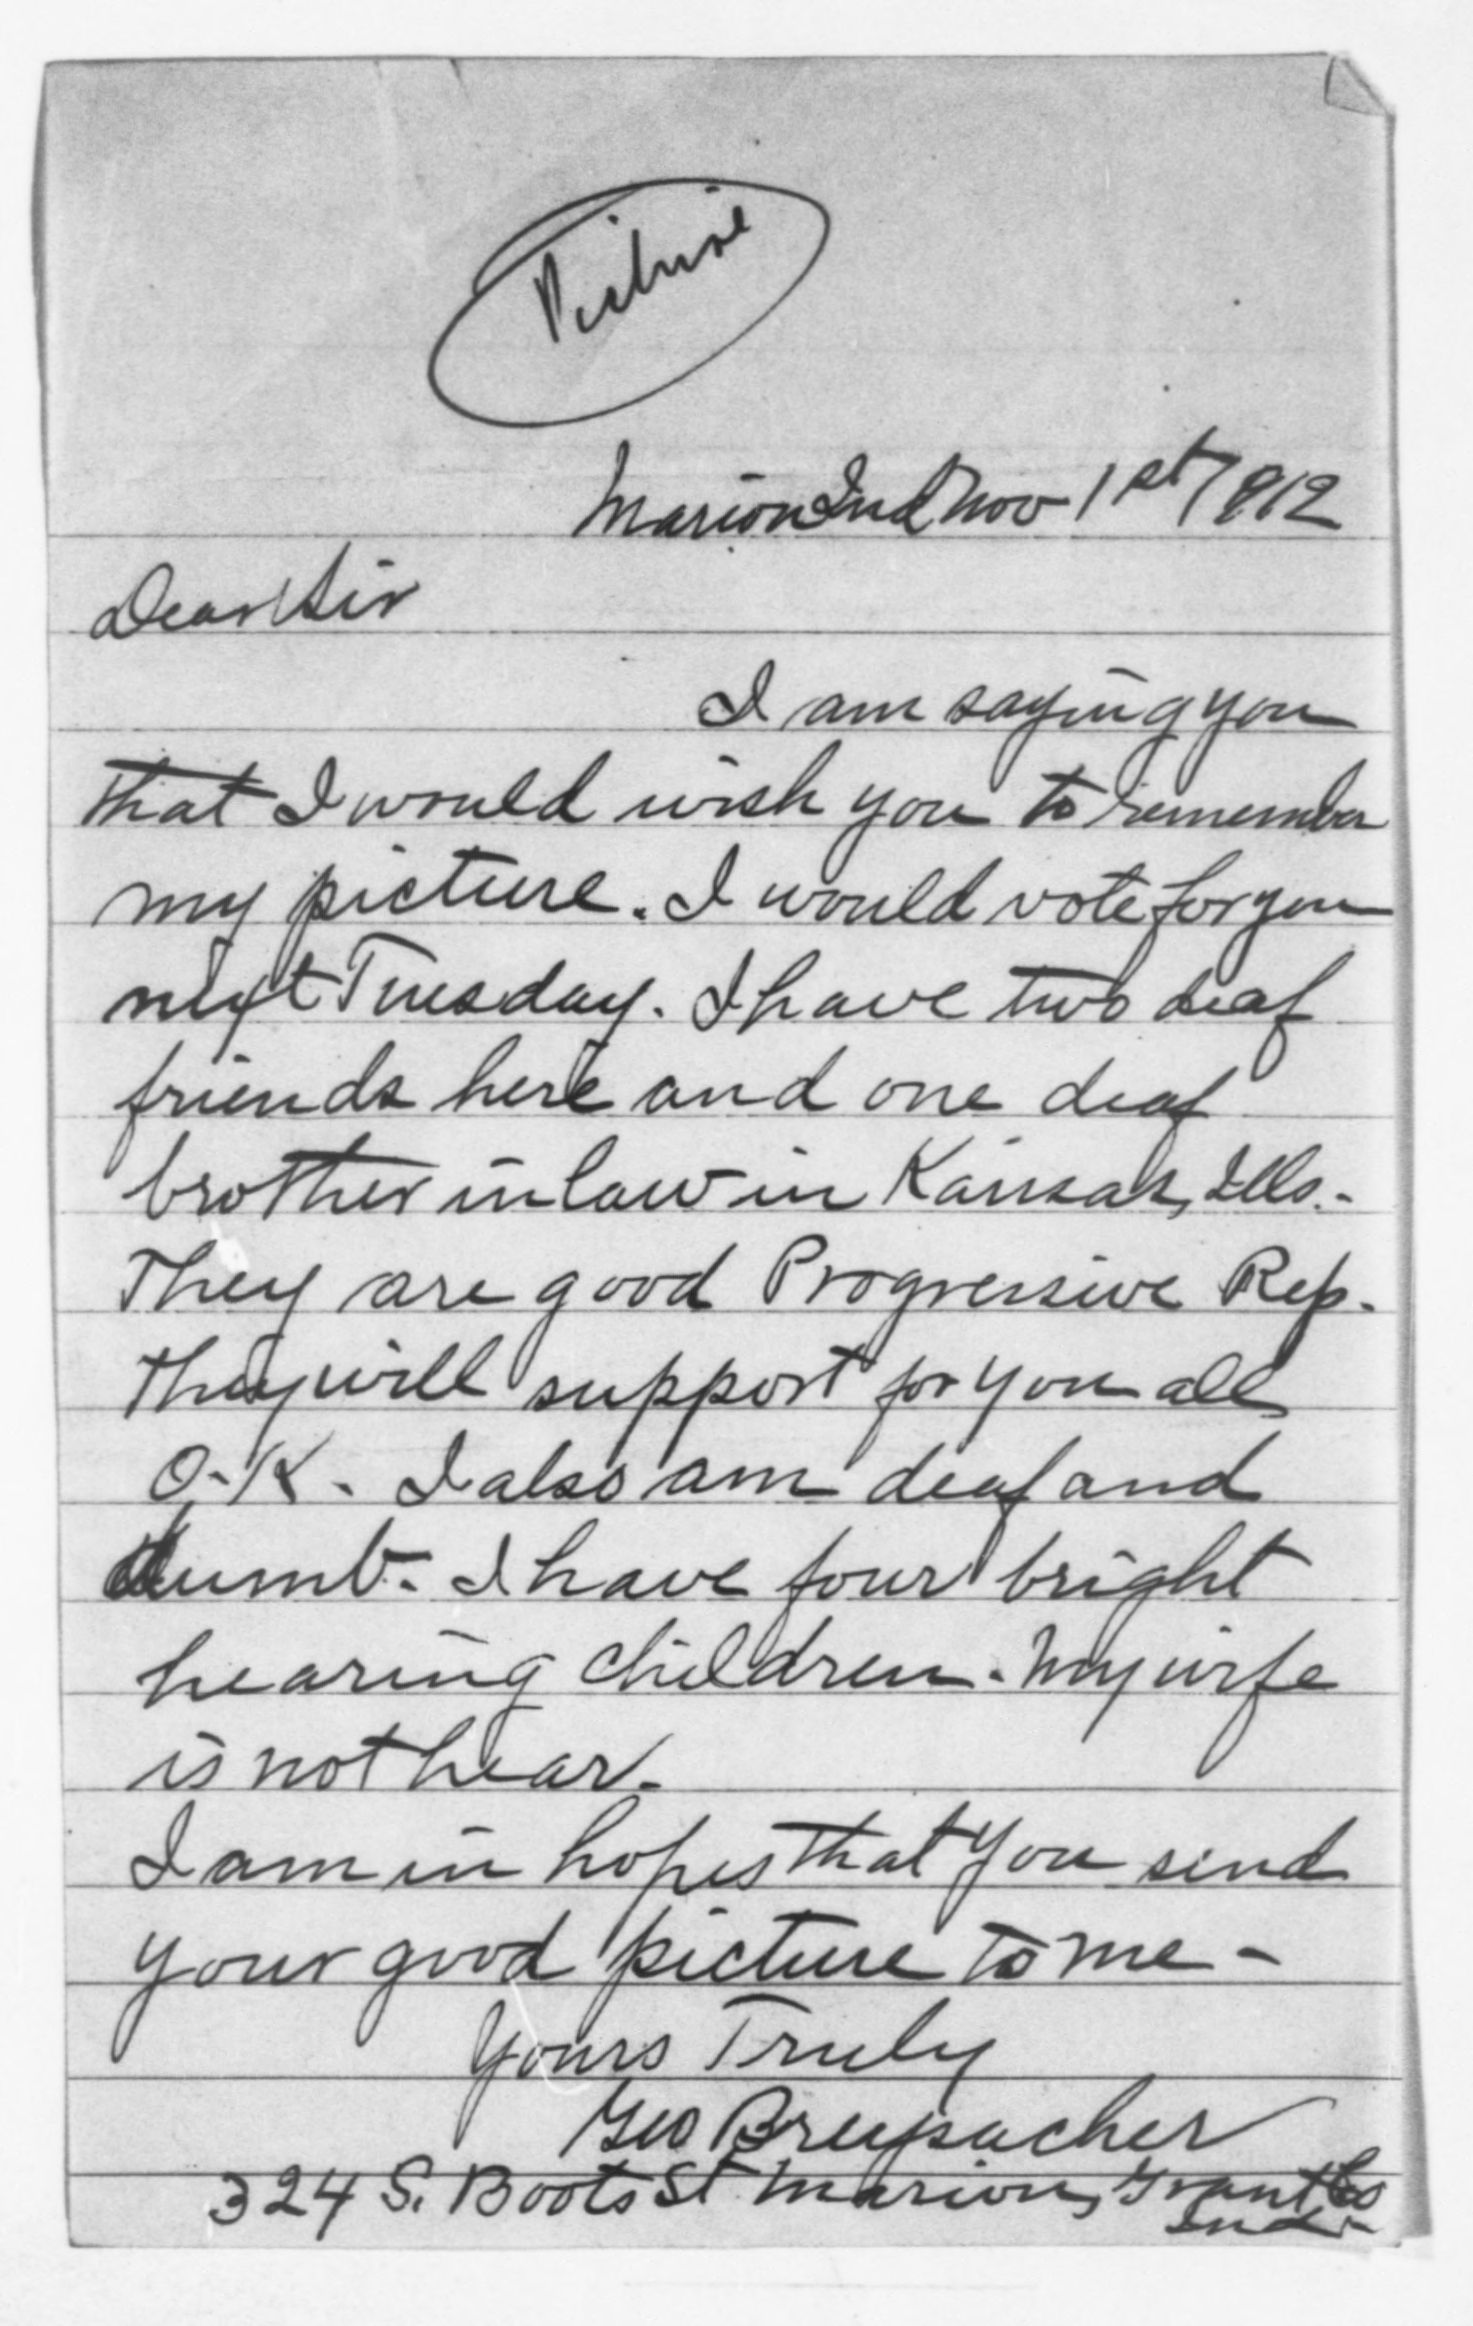 Picture
Marion Ind Nov 1st/1912
Dear Sir
I am saying you
that I would wish you to remember
my picture. I would vote for you
next Tuesday. I have two deaf
friends here and one deaf
brother in law in Kansas, Ills.
They are good Progressive Rep.
They will support for you all
O.K. I also am deaf and
dumb. I have four bright
hearing children. My wife
is not hear.
I am in hopes that you send
your good picture to me -
Yours Truly
Geo
324 S. Boots St Marion, Grant Co
Ind.